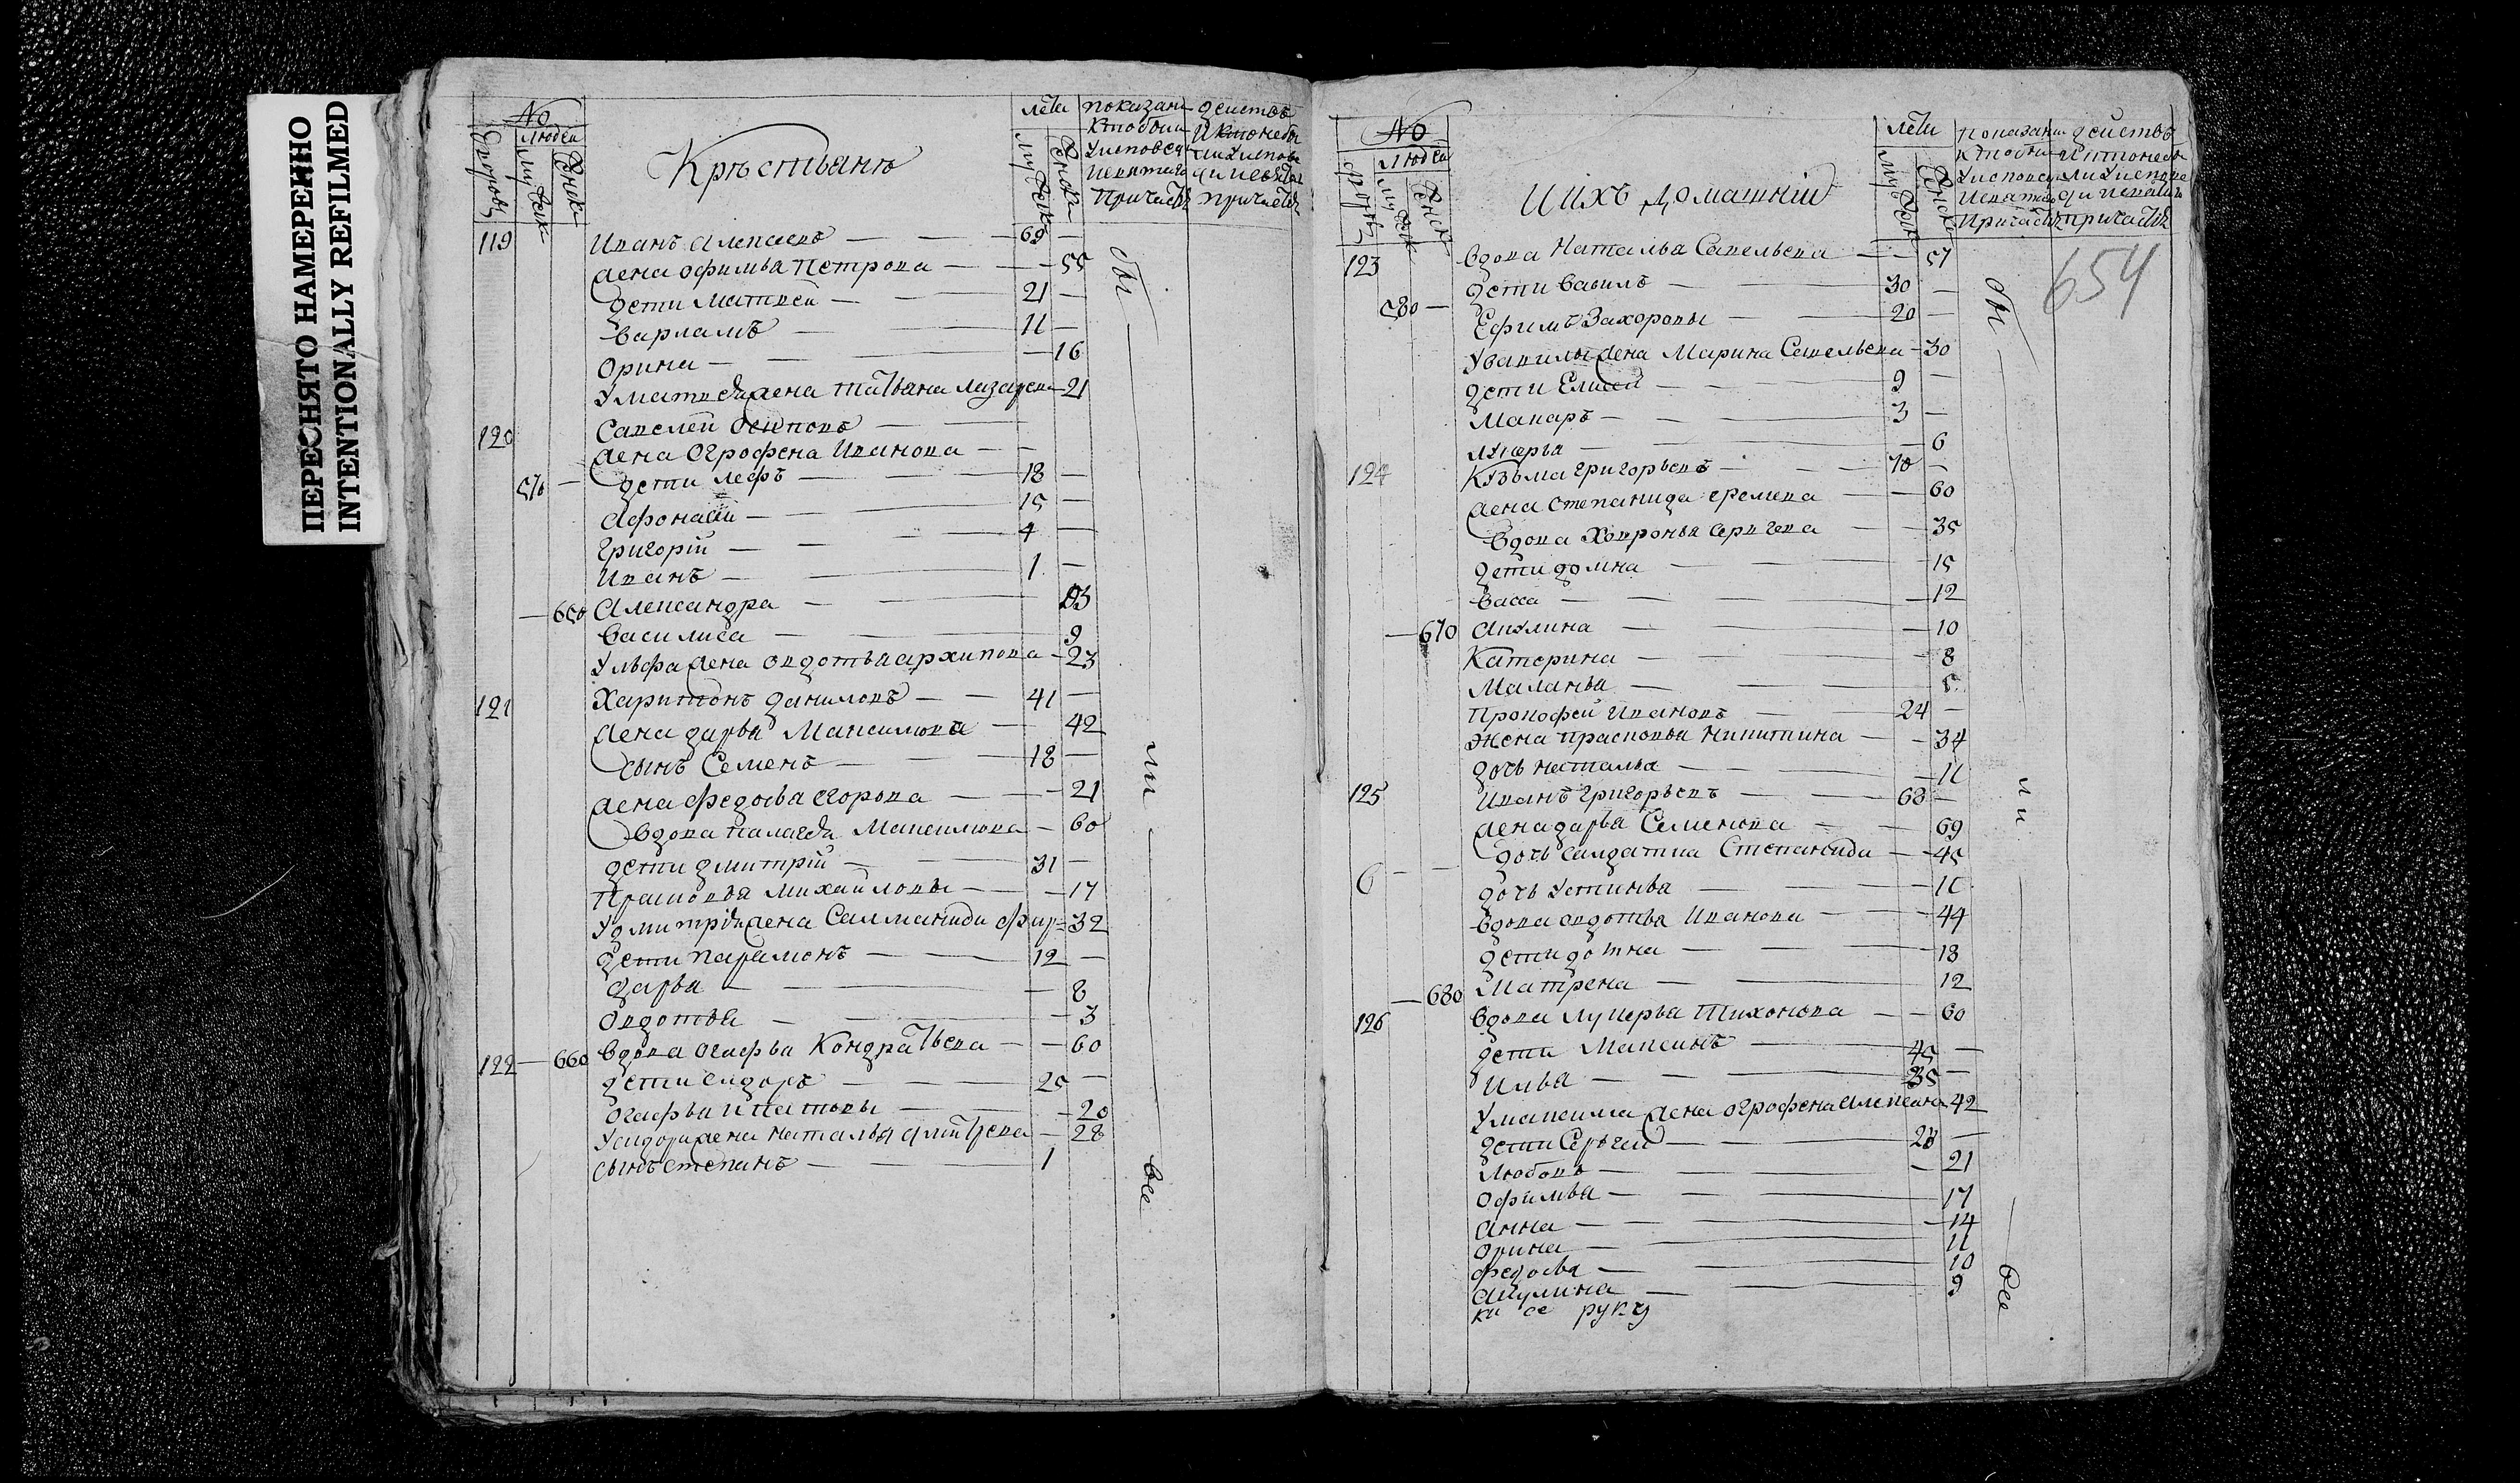 ПЕРЕСНЯТО НАМЕРЕННО
INTENTIONALLY REFILMED
№
людеи
лета
Крестьяне
119 Иванъ Алексеевъ 69
жена Офимья Петрова 55
дети Матвеи 21
Варламъ 11
Орина 16
У Матвея жена Татьяна Лазарева 21
120 Савелеи Осиповъ
жена Огрофена Иванова
570 дети Лефъ 18
Афонасiи 15
Григорiи 4
Иванъ 1
650 Александра
Василиса 9
У Льфа жена Овдотья Архипова 23
121 Харитонъ Даниловъ 41
жена Дарья Максимова 42
сынъ Семенъ 18
жена Федосья Егорова 21
вдова Палагея Максимова 60
дети Дмитрiи 31
Прасковья Михаиловы 17
У Дмитрiя жена Саломанида 32
дети Парамонъ 12
Дарья 8
Овдотья 3
122 660 вдова Огафья Кондратьева 60
дети Сидоръ 25
Огафья Ипатовы 20
У Сидора жена Наталья Дмитрева 28
сынъ Степанъ 1
бы
ли
все
№
людеи
лета
И ихъ домашнiи
654
123 вдова Наталья Савельева 57
дети Василъ 30
580 Ефимъ Захоровы 20
У Василы жена Марина Савельева 30
дети Елисеи 9
Макаръ 3
Лукерья 6
124 Кузьма Григорьевъ 70
жена Степанида Еремева 60
вдова Ховронья Сергева 35
дети Домна 15
Васса 12
670 Акулина 10
Катерина 8
Маланья 5
Прокофеи Ивановъ 24
жена Прасковья Никитина 34
дочь Наталья 11
125 Иванъ Григорьевъ 68
жена Дарья Семенова 69
дочь салдатка Степанида 45
дочь Устинья
вдова Овдотья Иванова 44
дети Домна 18
680 Матрена 12
126 вдова Лукерья Тихонова 60
дети Максимъ 45
Илья 35
У Максима жена Огрофена Алексеева 42
дети Сергеи 28
Любовь 21
Офимья 17
Анна 14
Орина 11
Федосья 10
Акулина 9
руку
бы
ли
все